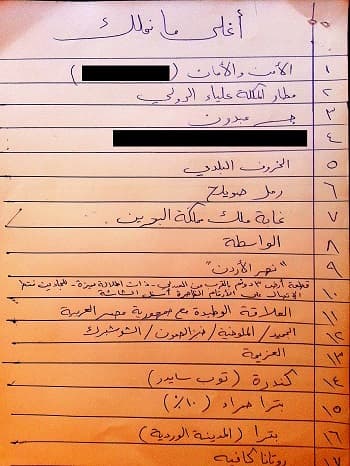 أغلى ما نملك
١ الأمن والأمان ( )
٢ مطار الملكة علياء الدولي
٣ جسر عبدون
٤
٥ الخروف البلدي
٦ رمل صويلح
٧ غابة ملك مملكة البحرين
٨ الواسطة
٩ "نهر الأردن"
١٠ قطعة أرض ٣ دونم بالقرب من - ذات اطلالة مميزة - للجادين فقط
الاتصال على الأرقام الظاهرة أسفل الشاشة
١١ العلاقة الوطيدة مع جمهورية مصر العربية
١٢ الجميد / الملوخية / / الشوشبرك
١٣ العزيمة
١٤ كندرة ( توب سايدر )
١٥ بترا حمراء ( ١٠٪ )
١٦ بترا ( المدينة الوردية )
١٧ روتانا كافيه